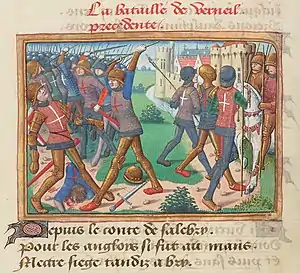 La bataille de verneil
precedente.
Depuis le conte de salebry.
Pour les anglois si fut au mans
Mectre siege tandiz a bry.